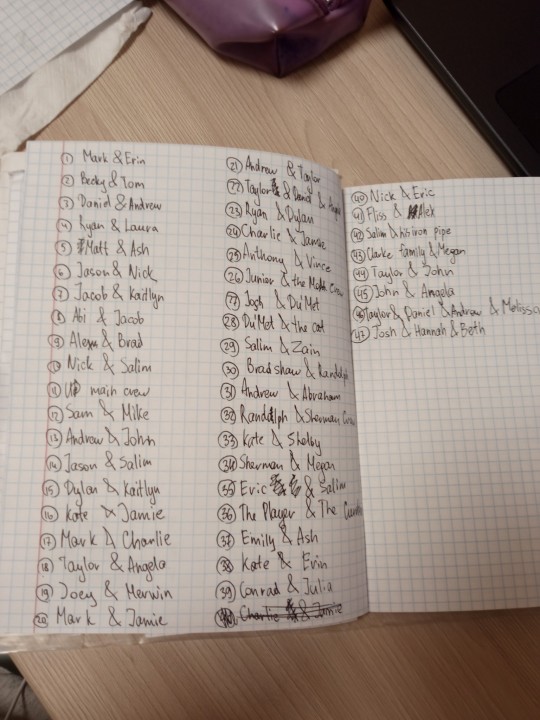 1 Mark & Erin
2 Becky & Tom
3 Daniel & Andrew
4 Ryan & Laura
5 Matt & Ash
6 Jason & Nick
7 Jacob & Kaitlyn
8 Abi & Jacob
9 Alex & Brad
10 Nick & Salim
11 UD main crew
12 Sam & Mike
13 Andrew & John
14 Jason & Salim
15 Dylan & Kaitlyn
16 Kate & Jamie
17 Mark & Charlie
18 Taylor & Angela
19 Joey & Merwin
20 Mark & Jamie
21 Andrew & Taylor
22 Taylor & Daniel &
23 Ryan & Dylan
24 Charlie & Jamie
25 Anthony & Vince
26 Junior & the Medan Crew
27 Josh & Du'Met
28 Du'Met & the cat
29 Salim & Zain
30 Bradshaw & Randolph
31 Andrew & Abraham
32 Randolph & Sherman
33 Kate & Shelby
34 Sherman & Megan
35 Eric & Salim
36 The Player & The
37 Emily & Ash
38 Kate & Erin
39 Conrad & Julia
40 Charlie & Jamie
40 Nick & Eric
41 Fliss & Alex
42 Salim & his iron pipe
43 Clarke family & Megan
44 Taylor & John
45 John & Angela
46 Taylor & Daniel & Andrew & Melissa
47 Josh & Hannah & Beth